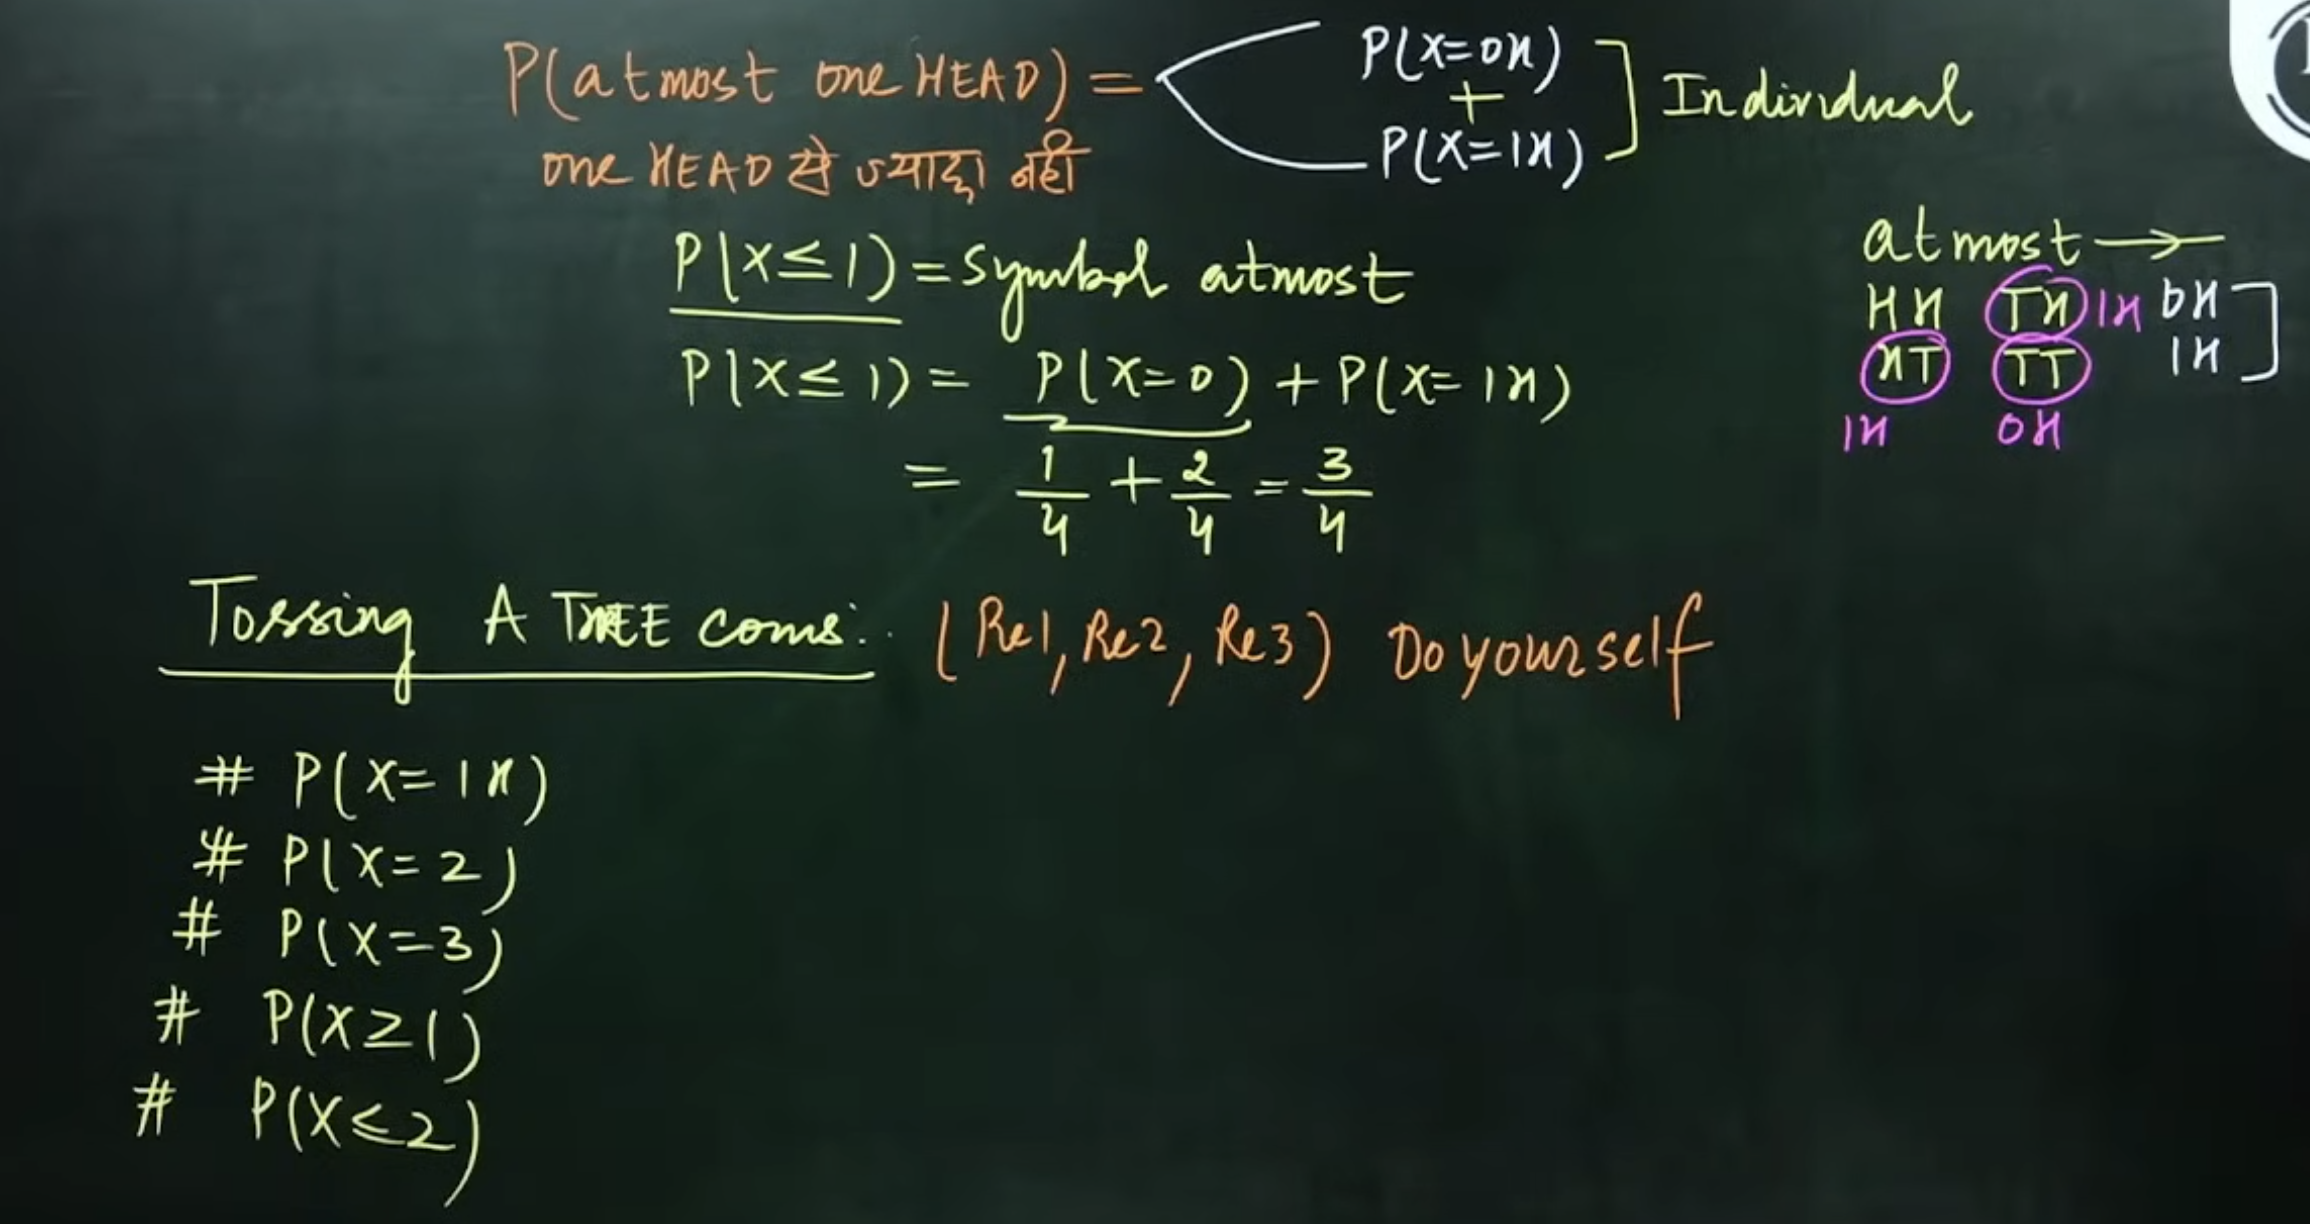 P(atmost one HEAD) = P(X=0H)
+
P(X=1H)
] Individual
one HEAD से ज्यादा नहीं
P(X≤1) = Symbol atmost
P(X≤1) = P(X=0) + P(X=1H)
= 1/4 + 2/4 = 3/4
atmost →
HH TH 1H 0H
HT TT 1H ]
1H 0H
Tossing A THREE coins: (Re1, Re2, Re3) Do yourself
# P(X=1H)
# P(X=2)
# P(X=3)
# P(X≥1)
# P(X≤2)